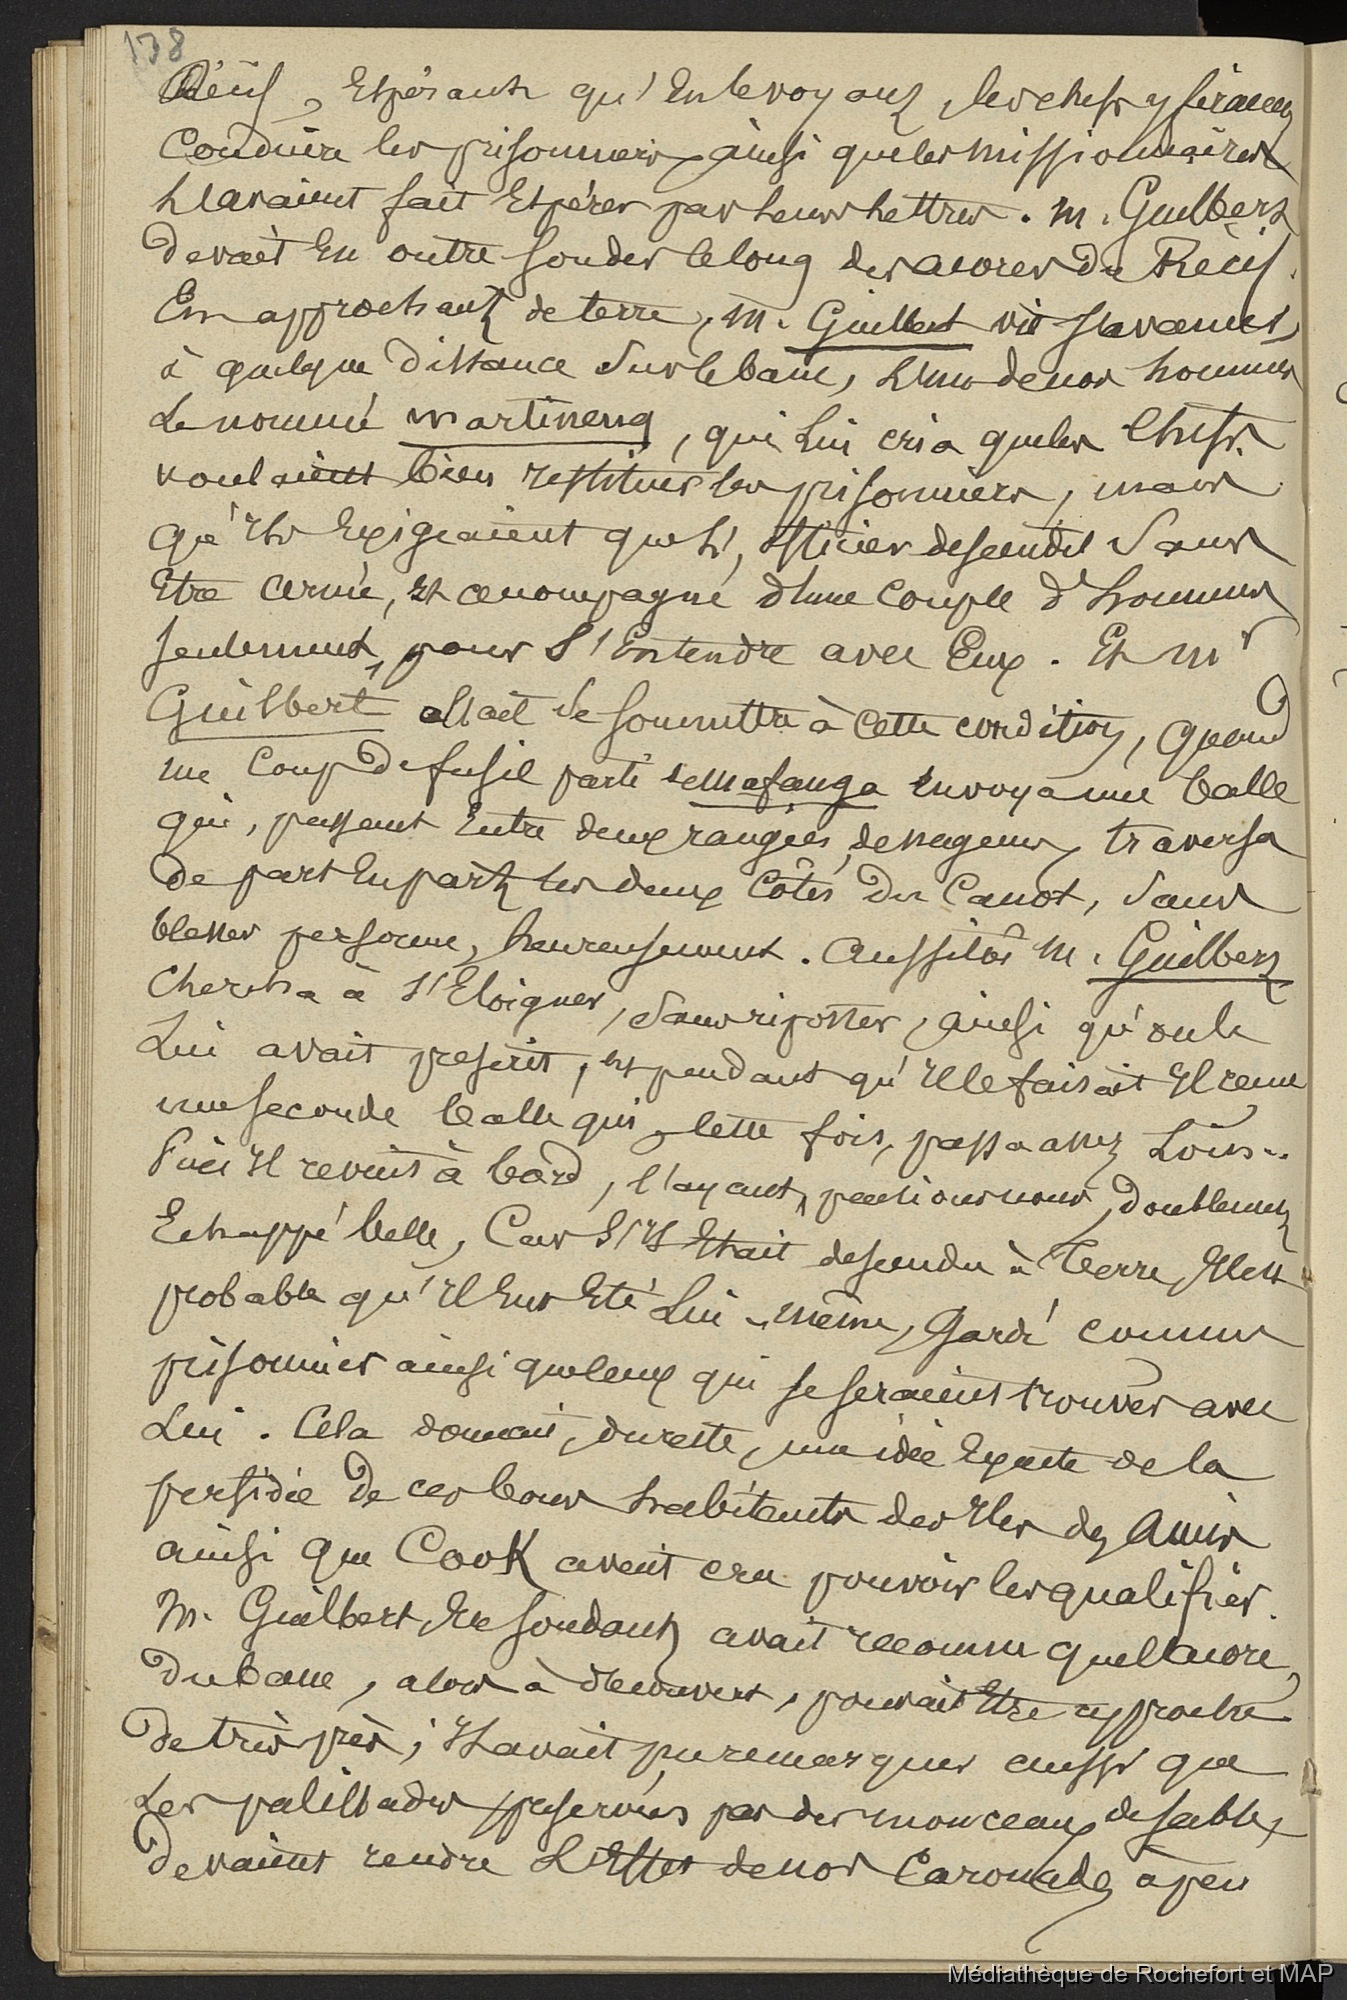 138
Récif, Espérant qu'En le voyant, les chefs y feraient
Conduire les prisonniers, ainsi que les missionnaires
L'avaient fait Espérer par Leurs Lettres. M. Guilbert
devait En outre sonder le long des acores du Récif.
En approchant de terre, M. Guilbert vit s'avancer,
à quelque distance sur le banc, L'un de nos hommes
Le nommé Martineng, qui Lui cria que les Chefs
voulaient bien restituer les prisonniers, mais
qu'Ils Exigeaient que L'officier descendit sans
Etre armé, Et accompagné d'une couple d'hommes
seulement, pour S'Entendre avec Eux. Et Mr
Guilbert allait se soumettre à cette condition, quand
un coup de fusil parti de Mafanga envoya une balle
qui, passant Entre deux rangées de nageurs, traversa
de part En part les deux Côtés du Canot, sans
blesser personne, heureusement. Aussitôt M. Guilbert
chercha à S'Eloigner, sans riposter, ainsi qu'on le
Lui avait prescrit, Et pendant qu'Il le faisait Il reçut
une seconde balle qui, cette fois, passa assez Loin..
Puis Il revint à bord, l'ayant, pensions nous, doublement
Echappé belle, Car S'Il Etait descendu à terre, Il est
probable qu'Il Eut Eté Lui-même, gardé comme
prisonnier ainsi que ceux qui se seraient trouvés avec
Lui. Cela donnait, du reste, une idée Exacte de la
perfidie de ces bons habitants des Iles des Amis
ainsi que Cook avait cru pouvoir les qualifier.
M. Guilbert, En sondant, avait reconnu que L'acore,
du banc, alors à découvert, pouvait Etre approché
de très près; Il avait pu remarquer aussi que
Les palissades préservées par des monceaux de sable,
devaient rendre L'Effet de nos Caronades à peu
Médiathèque de Rochefort et MAP